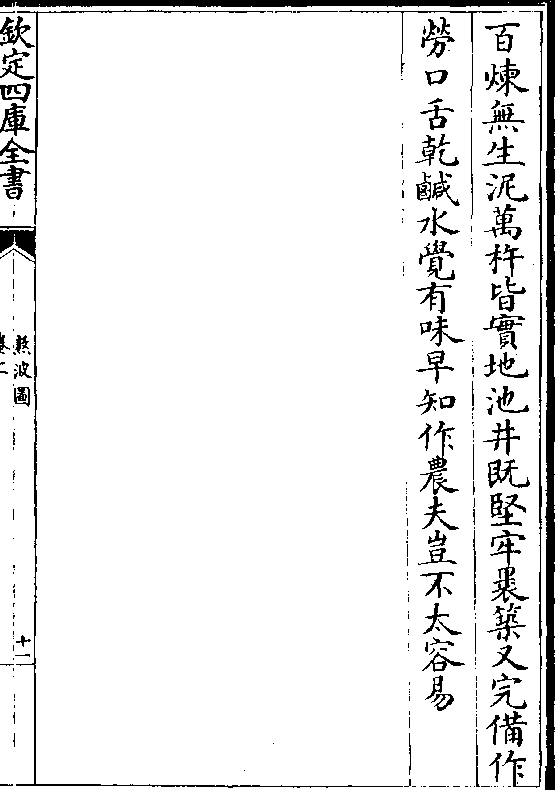 百煉無生泥萬杵皆實地池井既堅牢裹築又完備作
勞口舌乾鹹水覺有味早知作農夫豈不太容易
欽定四庫全書
熬波圖
十一